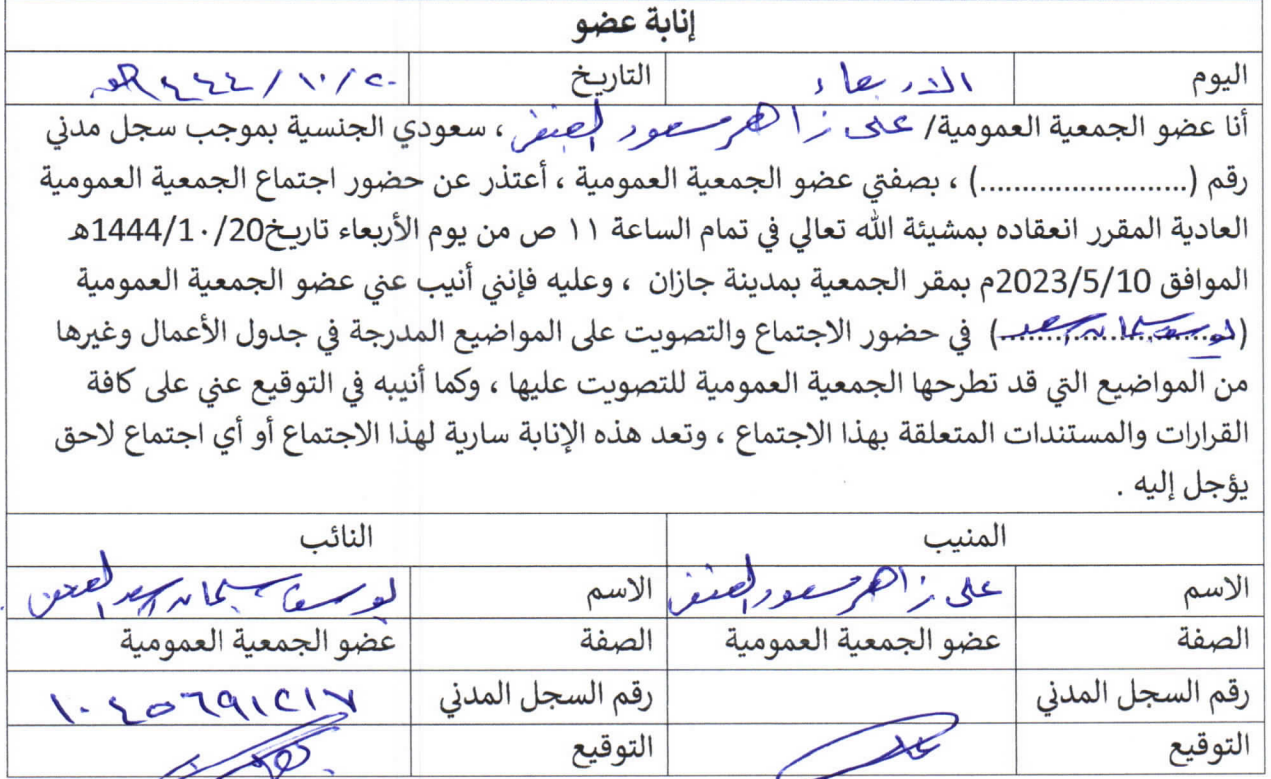 إنابة عضو
اليوم الاربعاء التاريخ ٢٠/١٠/١٤٤٤هـ
أنا عضو الجمعية العمومية/ على زاهر مسعود ، سعودي الجنسية بموجب سجل مدني
رقم (.........................) ، بصفتي عضو الجمعية العمومية ، أعتذر عن حضور اجتماع الجمعية العمومية
العادية المقرر انعقاده بمشيئة الله تعالي في تمام الساعة ١١ ص من يوم الأربعاء تاريخ1444/1٠/20هـ
الموافق 2023/5/10م بمقر الجمعية بمدينة جازان ، وعليه فإنني أنيب عني عضو الجمعية العمومية
(يوسف سلمان اسعد) في حضور الاجتماع والتصويت على المواضيع المدرجة في جدول الأعمال وغيرها
من المواضيع التي قد تطرحها الجمعية العمومية للتصويت عليها ، وكما أنيبه في التوقيع عني على كافة
القرارات والمستندات المتعلقة بهذا الاجتماع ، وتعد هذه الإنابة سارية لهذا الاجتماع أو أي اجتماع لاحق
يؤجل إليه .
المنيب النائب
الاسم على زاهر مسعود الاسم يوسف سلمان اسعد
الصفة عضو الجمعية العمومية الصفة عضو الجمعية العمومية
رقم السجل المدني رقم السجل المدني ١٠٤٥٦٩١٢١٧
التوقيع التوقيع